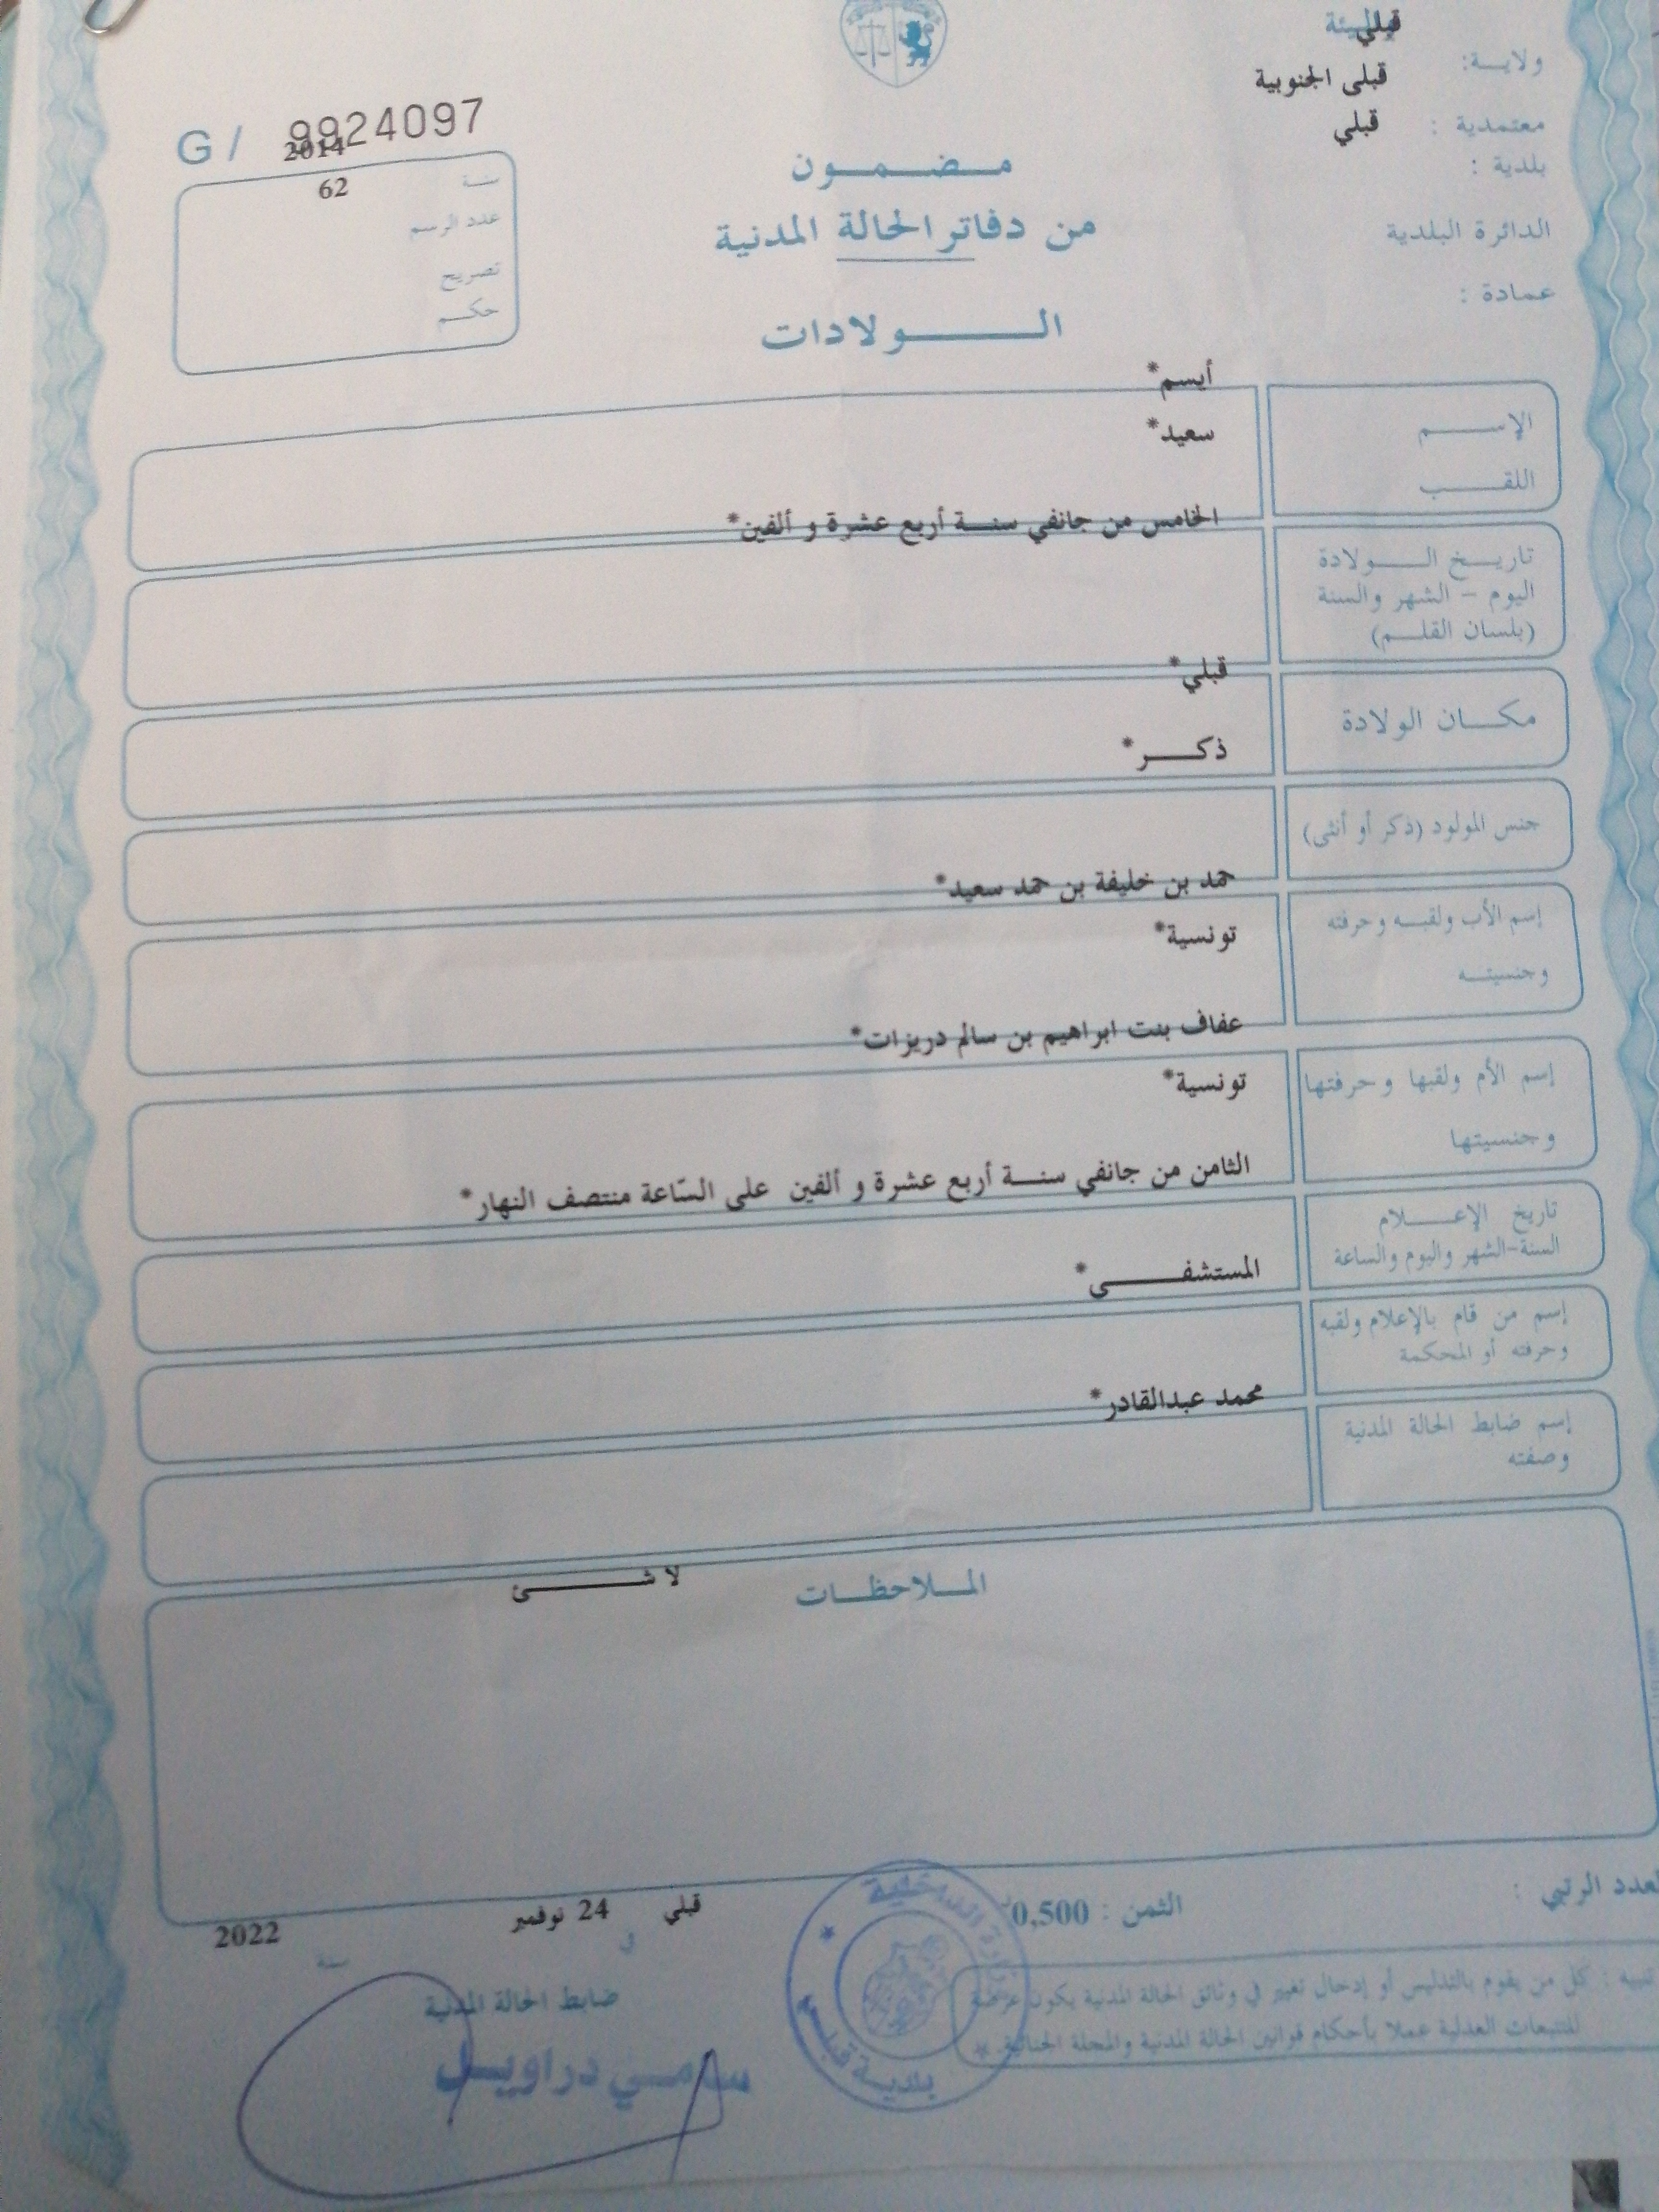 قبلي
ولايـــة:
قبلي الجنوبية
معتمدية :
قبلي
بلدية :
الدائرة البلدية
عمادة :
G / 9924097
2014
سنــة
62
عدد الرسم
تصريح
حكـــم
مـــضـــمـــون
من دفاتر الحالة المدنية
الـــــــولادات
أيسم*
الإســـــــم
سعيد*
اللقـــــــب
الخامس من جانفي سنـــة أربع عشرة و ألفين*
تاريـــخ الـــــولادة
اليوم – الشهر والسنة
(بلسان القلـــم)
قبلي*
مكـــان الولادة
ذكـــــر*
جنس المولود (ذكر أو أنثى)
حمد بن خليفة بن حمد سعيد*
إسم الأب ولقبـــه وحرفته
تونسية*
وجنسيتـــه
عفاف بنت ابراهيم بن سالم دريزات*
إسم الأم ولقبها وحرفتها
تونسية*
وجنسيتها
الثامن من جانفي سنـــة أربع عشرة و ألفين على السّاعة منتصف النهار*
تاريخ الإعـــــلام
السنة-الشهر واليوم والساعة
المستشفـــــــى*
إسم من قام بالإعلام ولقبه
وحرفته أو المحكمة
محمد عبدالقادر*
إسم ضابط الحالة المدنية
وصفته
الملاحظـــات
لا شـــــــئ
العدد الرتبي :
الثمن : 0,500
قبلي
في
24 نوفمبر
سنة
2022
تنبيه : كل من يقوم بالتدليس أو إدخال تغيير في وثائق الحالة المدنية يكون عرضة
للتتبعات العدلية عملا بأحكام قوانين الحالة المدنية والمجلة الجنائية.
ضابط الحالة المدنية
سامـــي دراويـــل
بلديـــة قبلـــي